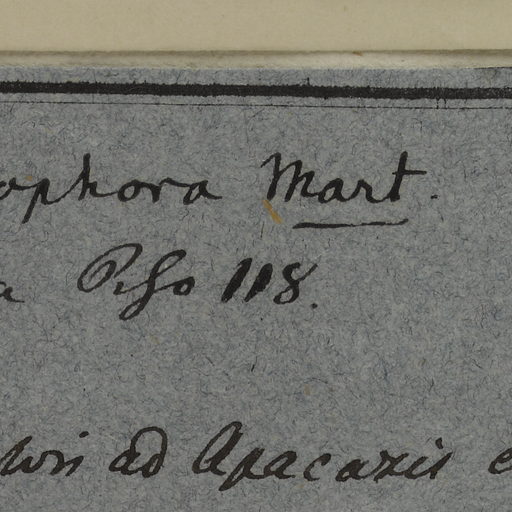 ophora Mart.
a Piso 118.
ad Apacaxis e